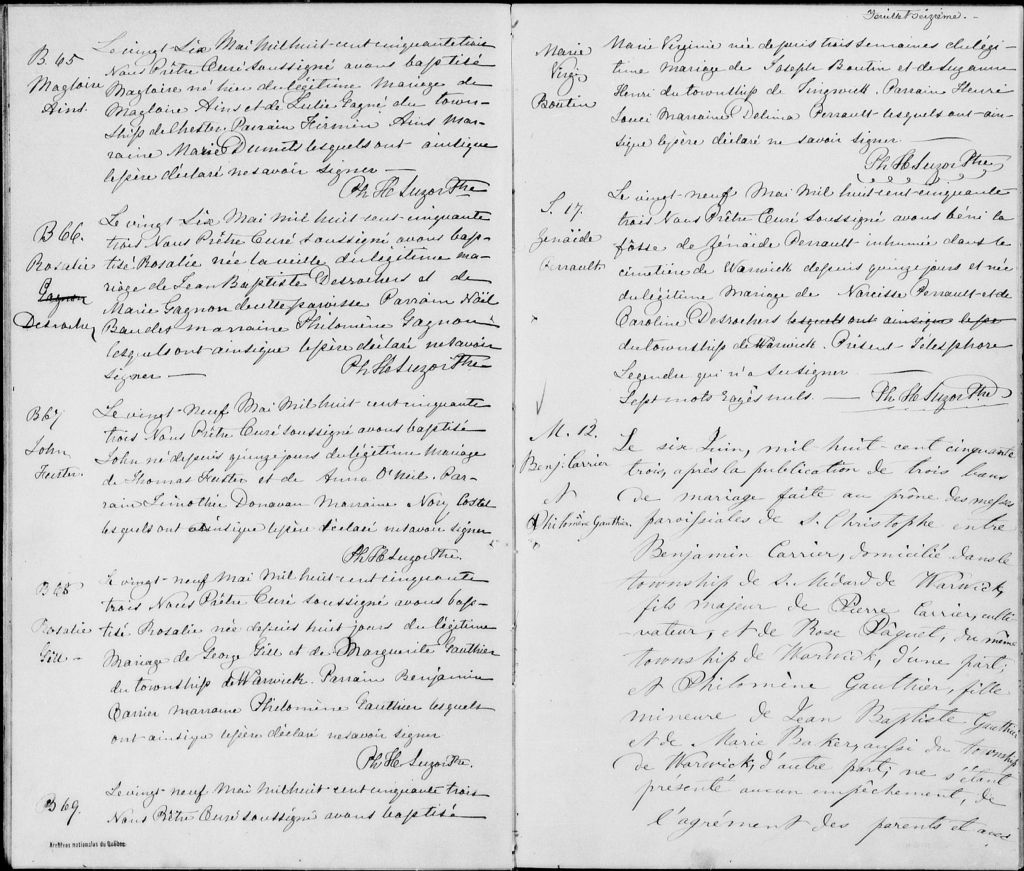 B. 65
Magloire
Hins.
Le vingt Six Mai Mil huit-cent cinquante trois
Nous Prêtre Curé soussigné avons baptisé
Magloire né hier du légitime Mariage de
Magloire Hins et de Julie Gagné du town-
ship de Chester. Parrain Firmin Hins Mar-
raine Marie Dumets lesquels ont ainsi que
le père déclaré ne savoir signer —
Ph H Suzor Ptre
B 66.
Rosalie
Gagnon
Desrochers
Le vingt Six Mai Mil huit-cent-cinquante
trois Nous Prêtre Curé soussigné avons bap-
tisé Rosalie née la veille du légitime ma-
riage de Jean Baptiste Desrochers et de
Marie Gagnon de cette paroisse Parrain Noël
Baudet marraine Philomène Gagnon
lesquels ont ainsi que le père déclaré ne savoir
signer —
Ph H Suzor Ptre
B 67
John
Le vingt-Neuf Mai Mil huit-cent cinquante
trois Nous Prêtre Curé soussigné avons baptisé
John né depuis quinze jours du légitime Mariage
de Thomas et de Anna O'Neil. Par-
rain Timothie Donavan Marraine Nory Costel
lesquels ont ainsi que le père déclaré ne savoir signer
Ph H Suzor Ptre.
B 68
Rosalie
Gill —
Le vingt-neuf Mai Mil huit-cent cinquante
trois Nous Prêtre Curé soussigné avons bap-
tisé Rosalie née depuis huit jours du légitime
Mariage de George Gill et de Marguerite Gauthier
du township de Warwick. Parrain Benjamin
Carrier marraine Philomène Gauthier lesquels
ont ainsi que le père déclaré ne savoir signer
Ph H Suzor Ptre.
B 69.
Le vingt-neuf Mai Mil huit-cent cinquante trois
Nous Prêtre Curé soussigné avons baptisé
Archives nationales du Québec
Feuillet seizième. —
Marie
Virg.
Boutin
Marie Virginie née depuis trois semaines du légi-
time mariage de Joseph Boutin et de Suzanne
Henri du township de Wingwick. Parrain Henri
Louci Marraine Delima Perrault lesquels ont ain-
si que le père déclaré ne savoir signer.
Ph H Suzor Ptre
S. 17.
Zénaïde
Perrault
Le vingt-neuf Mai Mil huit-cent-cinquante
trois Nous Prêtre Curé soussigné avons béni la
fosse de Zénaïde Perrault inhumée dans le
cimetière de Warwick depuis quinze jours et née
du légitime Mariage de Narcisse Perrault et de
Caroline Desrochers lesquels ont ainsi que le pe
du township de Warwick. Présent Télesphore
Legendre qui n'a su signer —
Sept mots rayés nuls. — Ph H Suzor Ptre
M. 12.
Benj. Carrier
&
Philomène Gauthier.
Le six Juin, mil huit-cent cinquante
trois, après la publication de trois bans
de mariage faite au prône des messes
paroissiales de S. Christophe entre
Benjamin Carrier, domicilié dans le
township de S. Médard de Warwick,
fils majeur de Pierre Carrier, culti-
-vateur, et de Rose Pâquet, du même
township de Warwick, d'une part;
et Philomène Gauthier, fille
mineure de Jean Baptiste Gauthier
et de Marie Baker aussi du township
de Warwick, d'autre part; ne s'étant
présenté aucun empêchement, de
l'agrément des parents et avec